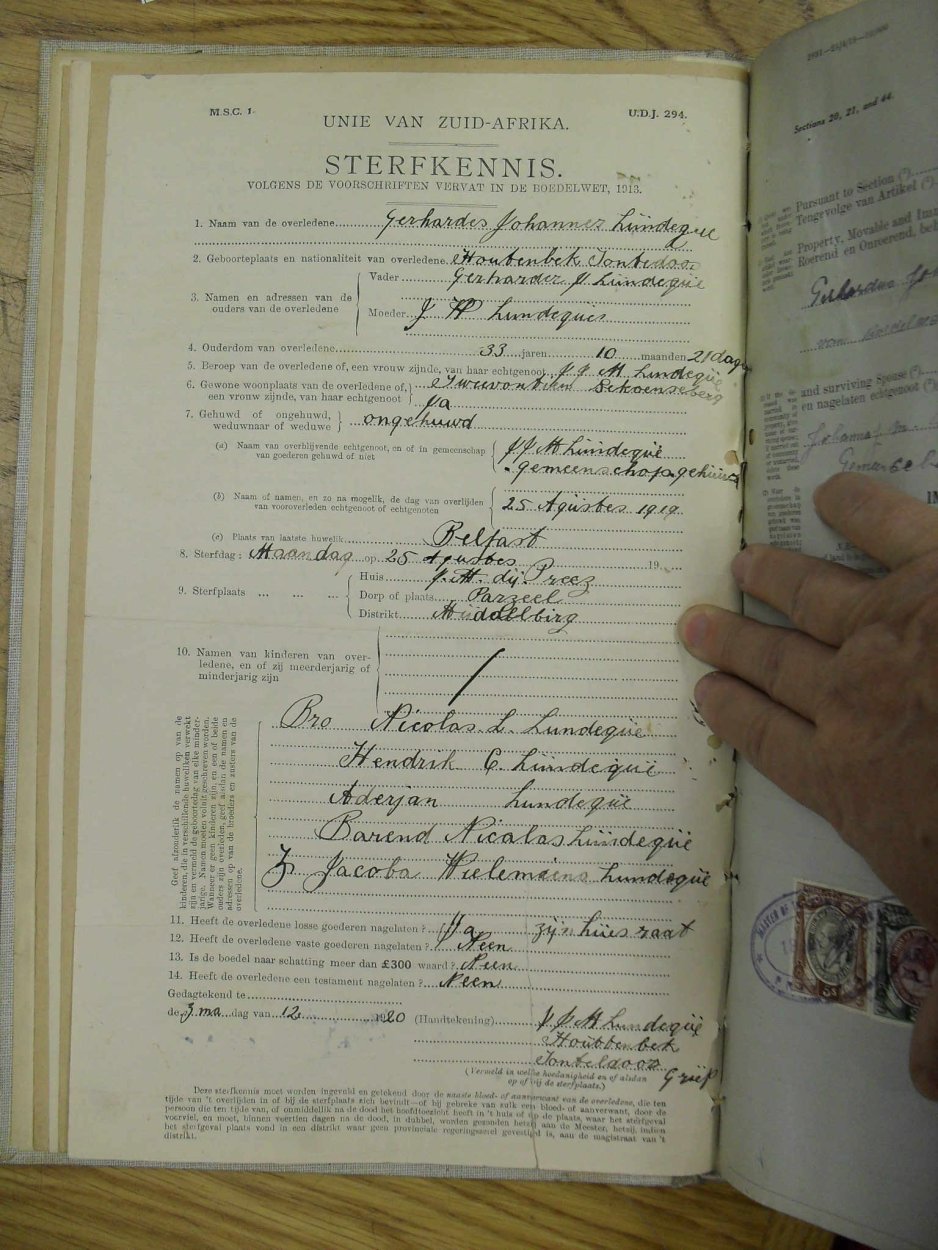 M.S.C. 1.
U.D.J. 294.
UNIE VAN ZUID-AFRIKA.
STERFKENNIS.
VOLGENS DE VOORSCHRIFTEN VERVAT IN DE BOEDELWET, 1913.
1. Naam van de overledene Gerhardes Johannes Lündeqüe
2. Geboorteplaats en nationaliteit van overledene. Houtenbek Tonteldoos
3. Namen en adressen van de ouders van de overledene
Vader Gerhardes J Lündeqüe
Moeder J H Lündeqües
4. Ouderdom van overledene 33 jaren 10 maanden 21 dage
5. Beroep van de overledene of, een vrouw zijnde, van haar echtgenoot J J M Lindeqüe
6. Gewone woonplaats van de overledene of, een vrouw zijnde, van haar echtgenoot
Ja
7. Gehuwd of ongehuwd, weduwnaar of weduwe ongehuwd
(a) Naam van overblijvende echtgenoot, en of in gemeenschap van goederen gehuwd of niet
J J M Lündeqüe
Gemeenschap gehüwd
(b) Naam of namen, en zo na mogelik, de dag van overlijden van vooroverleden echtgenoot of echtgenoten
25 Agüstes 1919
(c) Plaats van laatste huwelik Belfast
8. Sterfdag: Maandag op 25 Agustes 19
9. Sterfplaats ... ... ...
Huis J. M. dü Preez
Dorp of plaats Parzeel
Distrikt Middellbürg
10. Namen van kinderen van overledene, en of zij meerderjarig of minderjarig zijn
/
Geef afzonderlik de namen op van de kinderen, die in verschillende huweliken verwekt zijn en vermeld de geboortedag van elke minderjarige. Namen moeten voluit geschreven worden. Wanneer er geen kinderen zijn, en een of beide ouders zijn overleden, geef alsdan de namen en adressen op van de broeders en zusters van de overledene.
Bro Nicolas L. Lundeqüe
Hendrik C. Lündeqüe
Aderjan Lundeqüe
Barend Nicalas Lündeqüe
Z Jacoba Wielemiens Lundeqüe
11. Heeft de overledene losse goederen nagelaten? Ja zijn hües raat
12. Heeft de overledene vaste goederen nagelaten? Neen
13. Is de boedel naar schatting meer dan £300 waard? Neen
14. Heeft de overledene een testament nagelaten? Neen
Gedagtekend te
de 3 ma dag van 12 1920 (Handtekening) J J M Lundeqüe
Houttenbek
Tonteldoos
(Vermeld in welke hoedanigheid en of alsdan op of bij de sterfplaats.)
Deze sterfkennis moet worden ingevuld en getekend door de naaste bloed- of aanverwant van de overledene, die ten
tijde van 't overlijden in of bij de sterfplaats zich bevindt—of bij gebreke van zulk een bloed- of aanverwant, door de
persoon die ten tijde van, of onmiddellik na de dood het hoofdtoezicht heeft in 't huis of op de plaats, waar het sterfgeval
voorviel, en moet, binnen veertien dagen na de dood, in dubbel, worden gezonden hetzij aan de Meester, hetzij, indien
het sterfgeval plaats vond in een distrikt waar geen provinciale regeringszetel gevestigd is, aan de magistraat van 't
distrikt.
Sections 20, 21, and 44.
Pursuant to Section
Tengevolge van Artikel
Property, Movable and
Roerend en Onroerend,
and surviving Spouse
en nagelaten echtgenoot